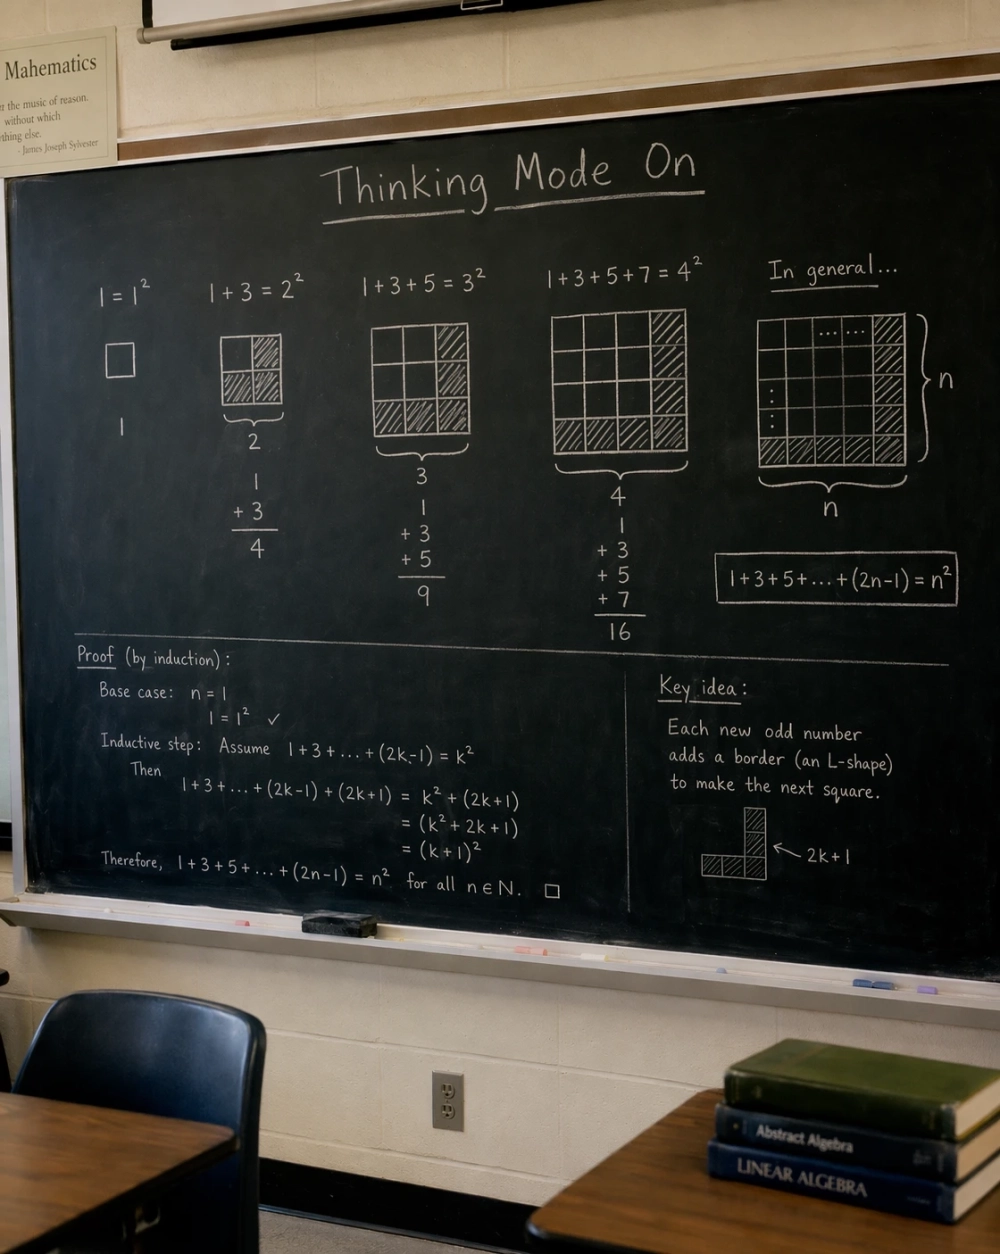 Mahematics
the music of reason.
without which
thing else.
- James Joseph Sylvester
Thinking Mode On
1 = 1²
1
1 + 3 = 2²
2
1
+ 3
4
1+3+5 = 3²
3
1
+ 3
+ 5
9
1+3+5+7 = 4²
4
1
+ 3
+ 5
+ 7
16
In general...
... ...
n
n
1+3+5+...+(2n-1) = n²
Proof (by induction):
Base case: n = 1
1 = 1² ✓
Inductive step: Assume 1+3+...+(2k-1) = k²
Then
1+3+...+(2k-1) + (2k+1) = k² + (2k+1)
= (k² + 2k + 1)
= (k+1)²
Therefore, 1+3+5+...+(2n-1) = n² for all n ∈ N. □
Key idea:
Each new odd number
adds a border (an L-shape)
to make the next square.
2k+1
Abstract Algebra
LINEAR ALGEBRA